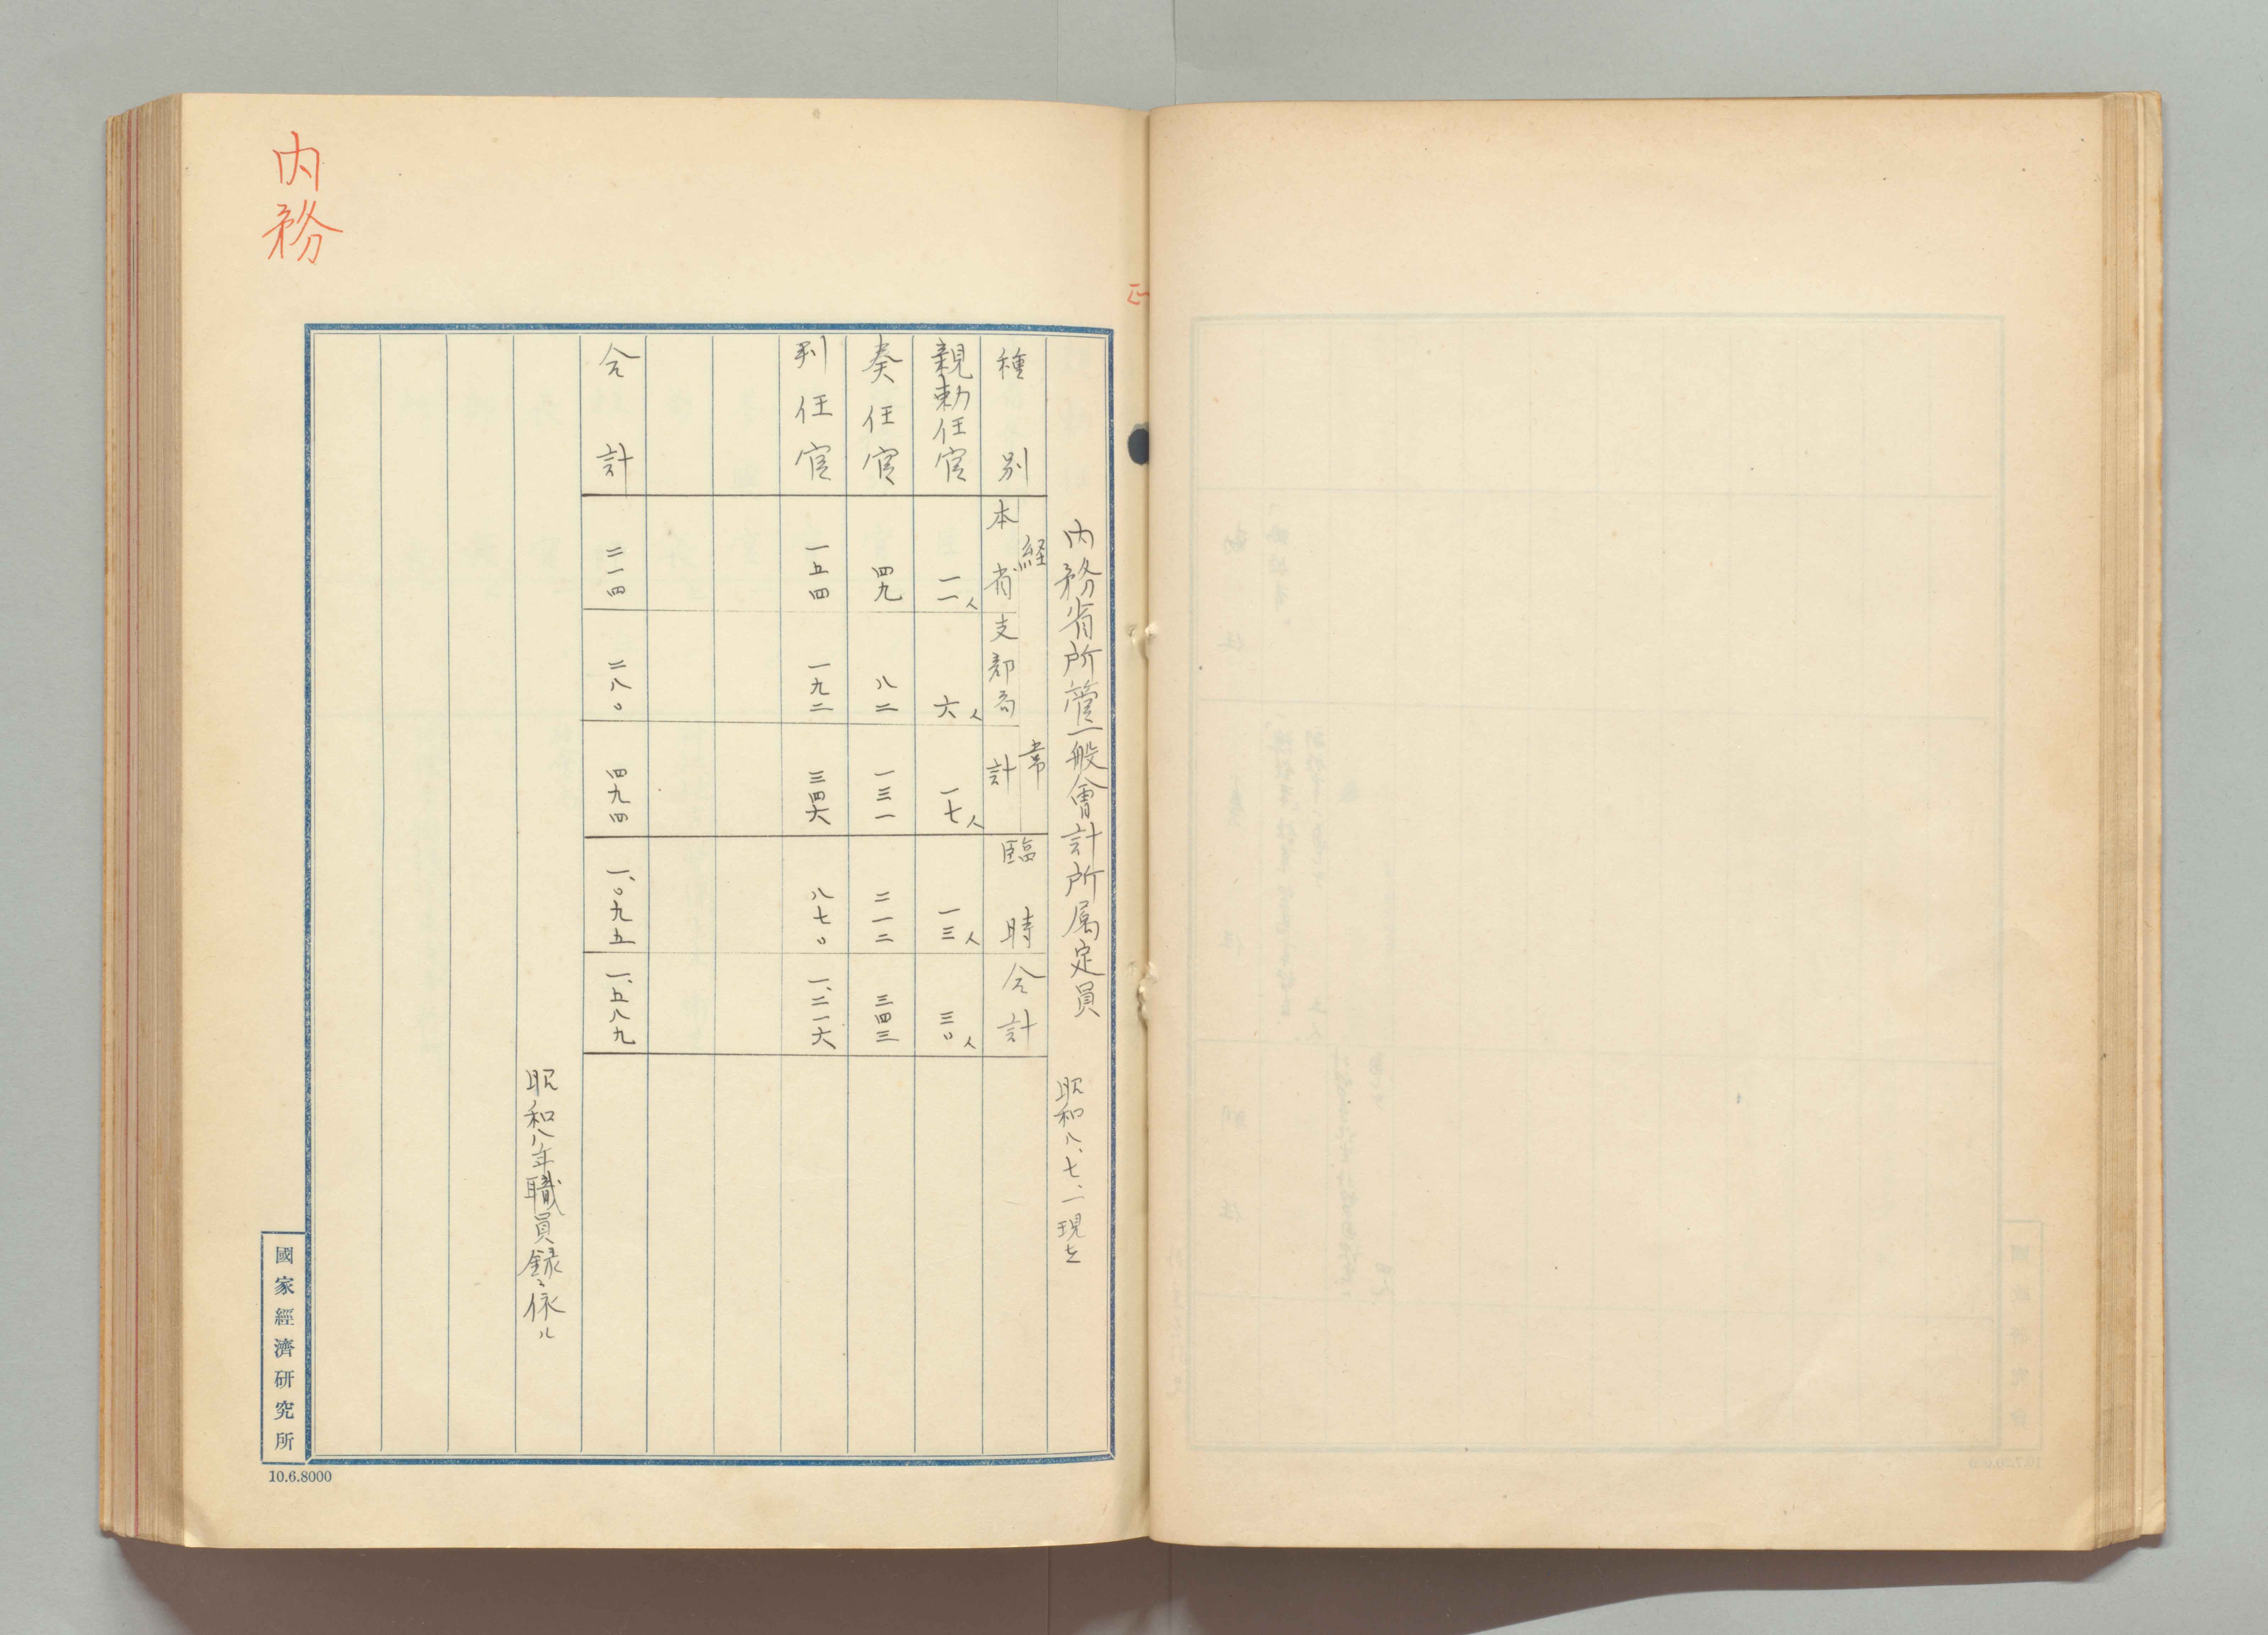 内務
内務省所管一般會計所属定員 昭和八、七、一現在
種別 経常 臨時 合計
本省 支部局 計
親勅任官 一一人 六人 一七人 一三人 三〇人
奏任官 四九 八二 一三一 二一二 三四三
判任官 一五四 一九二 三四六 八七〇 一、二一六
合計 二一四 二八〇 四九四 一、〇九五 一、五八九
昭和八年職員録ニ依ル
國家經濟研究所
10.6.8000